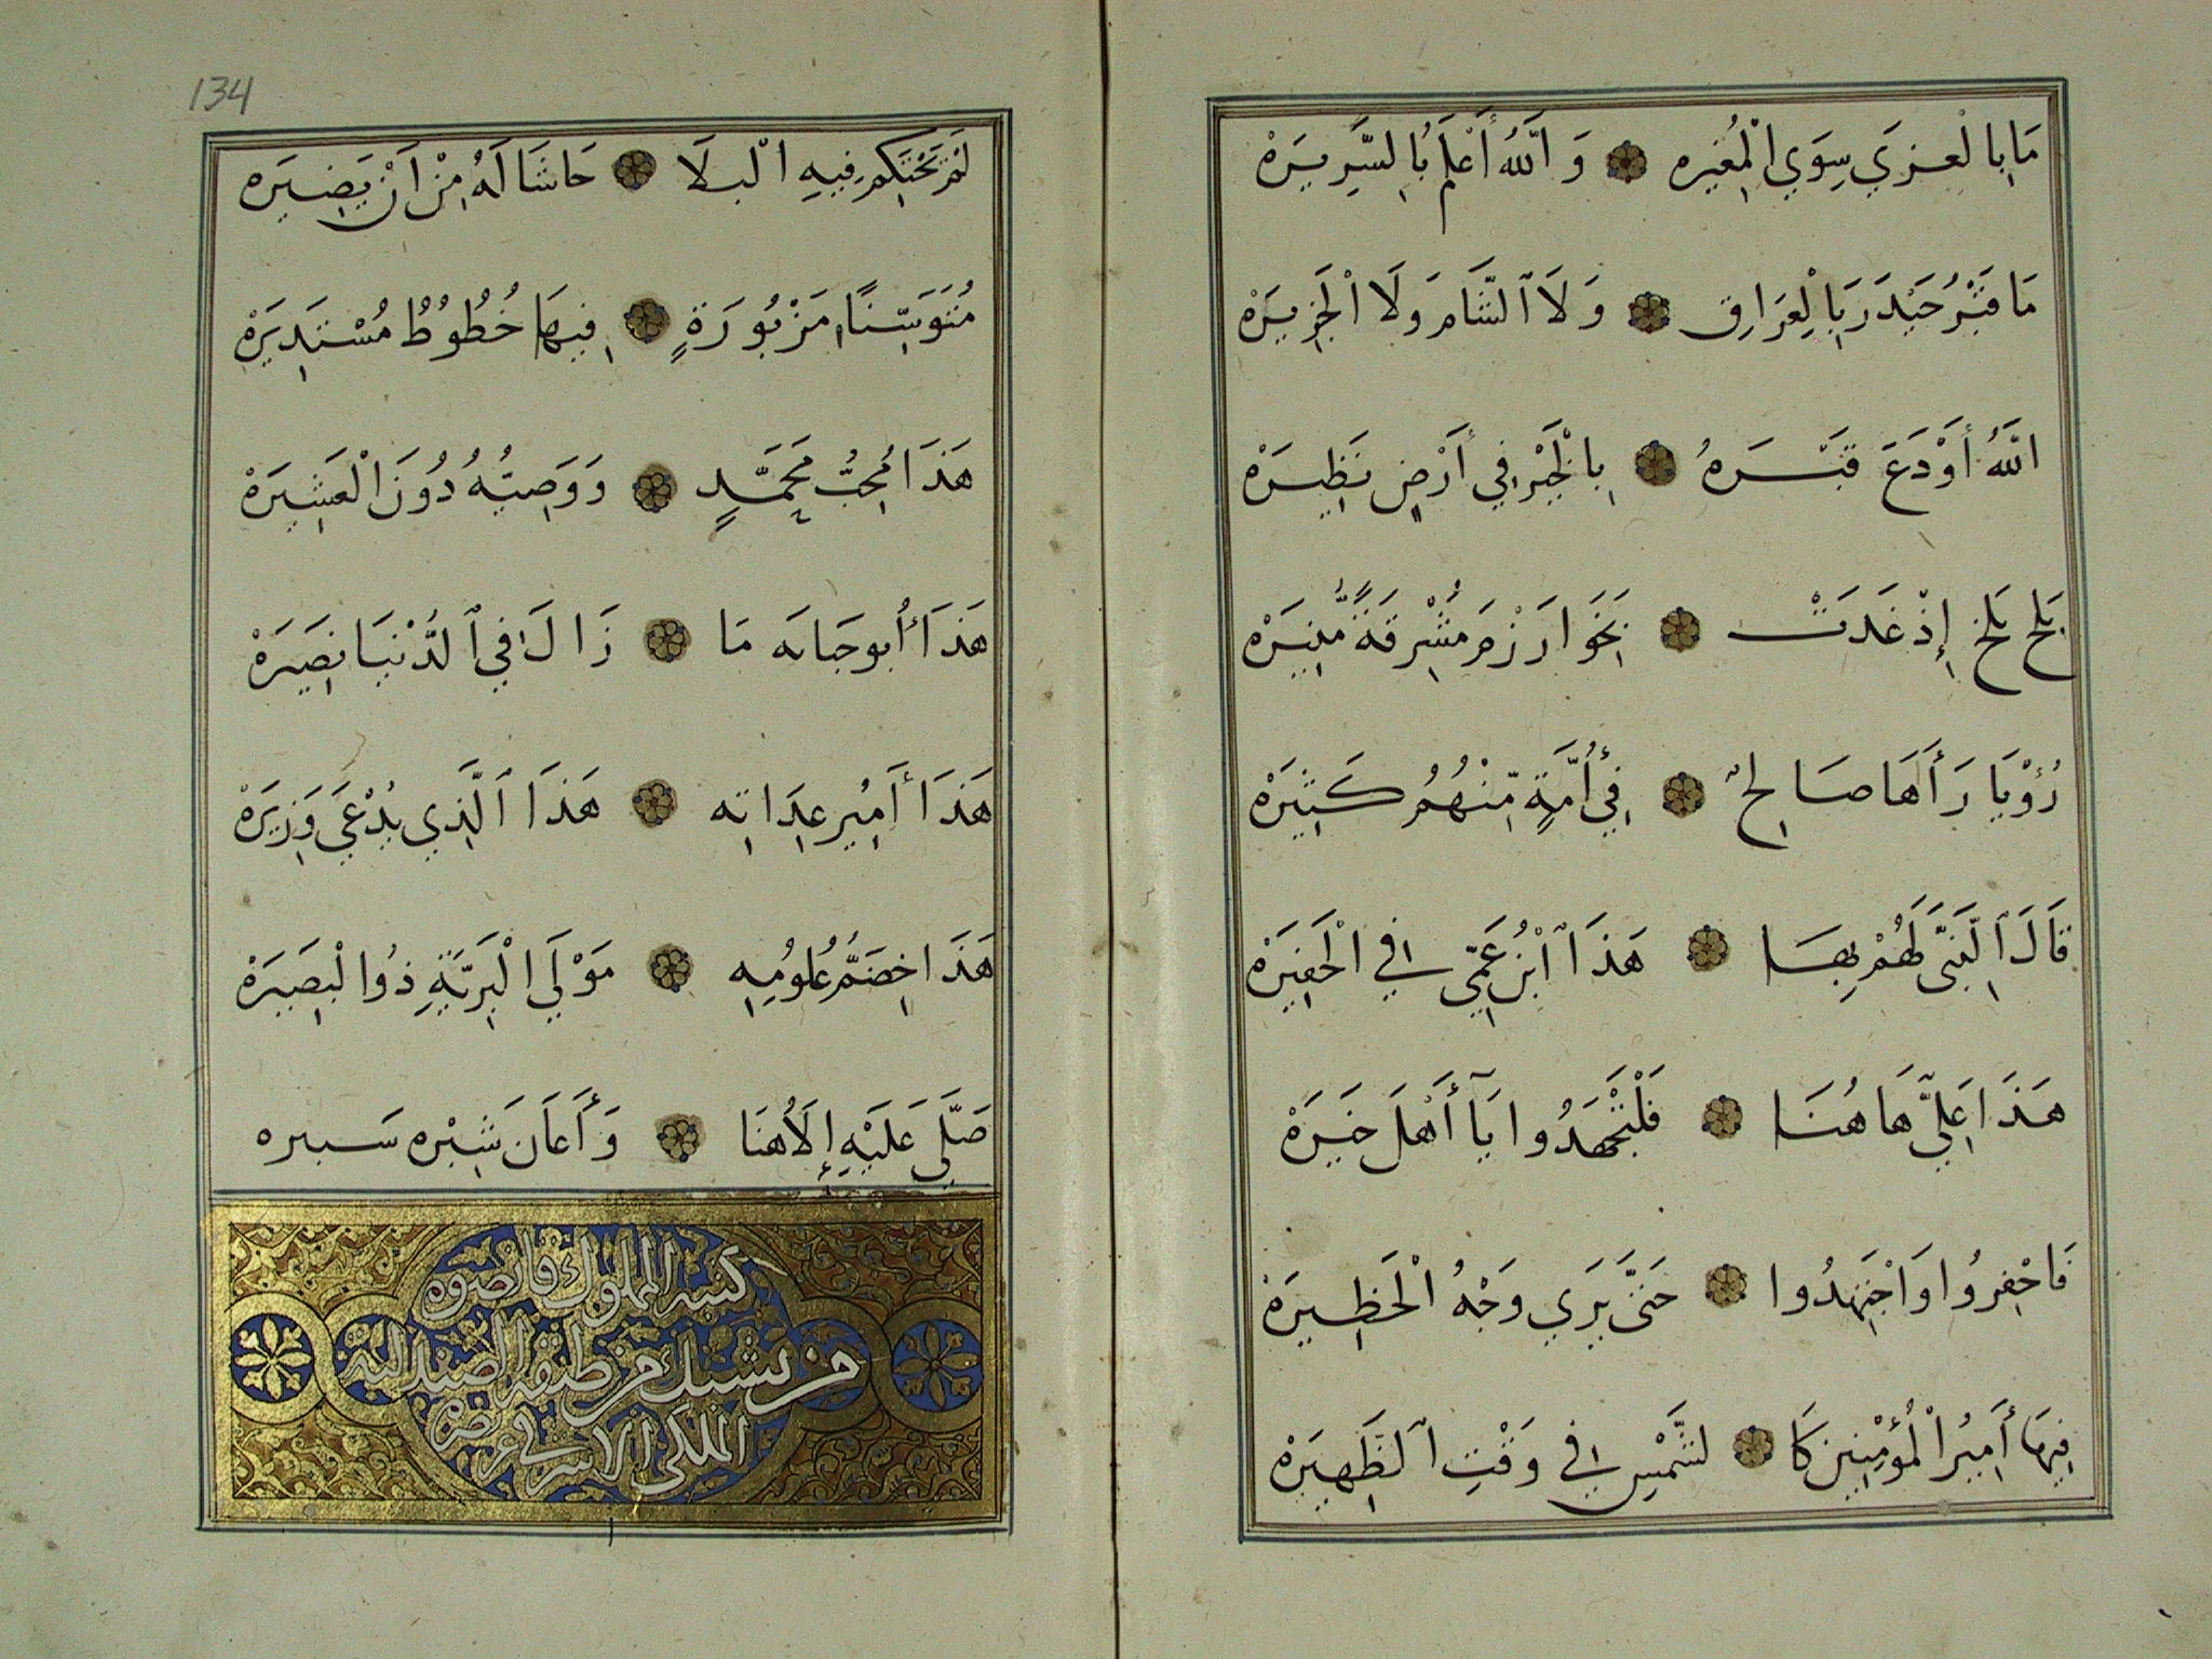 مَا بِالْعزي سِوَي الْمُغيره وَاللَّهُ أَعْلَمُ بِالسَّرِيرَهْ
مَا قَبْرُ حَيْدَرَ بِالْعِرَاقِ وَلَا الشَّامِ وَلَا الْجَزِيرَهْ
اللَّهُ أَوْدَعَ قَبْرَهُ بِالْخَيْرِ فِي أَرْضٍ نَظِيرَهْ
بَلْخ بَلْخ إِذْ غَدَتْ بِخَوَارَزْمَ مُشْرِقَةً مُّنِيرَهْ
رُؤْيَا رَأَهَا صَالِحٌ فِي أُمَّةٍ مِّنْهُمُ كَثِيرَهْ
قَالَ النَّبِيَّ لَهُمْ بِهَا هَذَا ابْنُ عَمِّي فِي الْحَفِيرَهْ
هَذَا عَلِيٌّ هَا هُنَا فَلْتَجْهَدُوا يَا أَهْلَ خَيرَهْ
فَاحْفِرُوا وَاجْتَهِدُوا حَتَّى يَرَي وَجْهُ الْحَظِيرَهْ
فِيهَا أَمِيرُ الْمُؤْمِنِينَ كَا لشَّمْسِ فِي وَقْتِ الظَّهِيرَهْ
134
لَمْ يَحْتَكِمْ فِيهِ الْبلَا حَاشَا لَهُ مِنْ اَنْ يَضِيرَه
مُتَوَسِّنًا مَزْبُورَةٍ فِيهَا خُطُوطٌ مُسْتَدِيرَهْ
هَذَا مُحِبُّ مُحَمَّدٍ وَوَصِيُّهُ دُونَ الْعَشِيرَهْ
هَذَا أُبو جَانه مَا زَالَ فِي الدُّنْيَا نَصِيرَهْ
هَذَا أَمِير عِدَاتِه هَذَا الَّذِي يُدْعَي وَزِيرَهْ
هَذَا خِضَمُّ عُلُومِهِ مَوْلَي الْبَرِيَّةِ ذُوا لْبَصِيرَهْ
صَلَّي عَلَيْهِ إِلَاهُنَا وَأَعَانَ شِبْره سَبيره
كتبه المملوك قانصوه
من يشبك من طبقة الصندلية
الملكي الاشرفي عز نصره